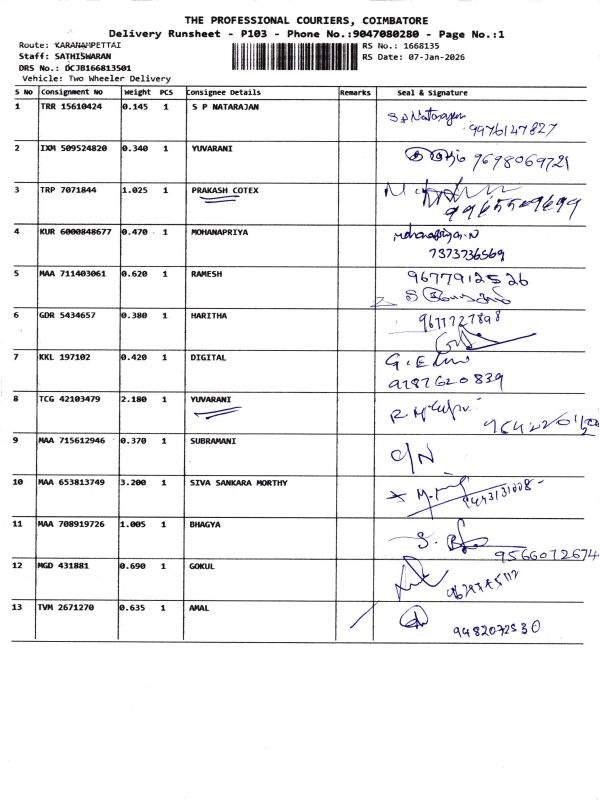 THE PROFESSIONAL COURIERS, COIMBATORE
Delivery Runsheet - P103 - Phone No.:9047080280 - Page No.:1
Route: KARANAMPETTAI
Staff: SATHISWARAN
DRS No.: DCJB166813501
Vehicle: Two Wheeler Delivery
RS No.: 1668135
RS Date: 07-Jan-2026
S No Consignment No Weight PCS Consignee Details Remarks Seal & Signature
1 TRR 15610424 0.145 1 S P NATARAJAN S P Natarajan
9976147827
2 IXM 509524820 0.340 1 YUVARANI 9698069721
3 TRP 7071844 1.025 1 PRAKASH COTEX
9965509699
4 KUR 6000848677 0.470 1 MOHANAPRIYA Mohanapriya.N
7373736569
5 MAA 711403061 0.620 1 RAMESH 9677912526
6 GDR 5434657 0.380 1 HARITHA 9677727898
7 KKL 197102 0.420 1 DIGITAL
9787620839
8 TCG 42103479 2.180 1 YUVARANI
9 MAA 715612946 0.370 1 SUBRAMANI C/N
10 MAA 653813749 3.200 1 SIVA SANKARA MORTHY
11 MAA 708919726 1.005 1 BHAGYA
9566072674
12 MGD 431881 0.690 1 GOKUL
13 TVM 2671270 0.635 1 AMAL
9482072530